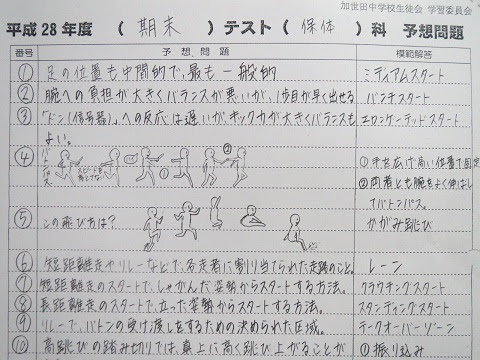 加世田中学校生徒会 学習委員会
平成28年度 (期末)テスト(保体)科 予想問題
番号 予想問題 模範解答
① 足の位置も中間的で、最も一般的 ミディアムスタート
② 腕への負担が大きくバランスが悪いが、1歩目が早く出せる バンチスタート
③ 「ドン(信号器)」への反応は遅いが、キック力が大きくバランスも エロンゲーテッドスタート
よい。
④ バトンパス スピードを落とさない ① ② ①手を広げ高い位置で固定
②両者とも腕をよく伸ばし
てバトンパス。
⑤ この跳び方は? かがみ跳び
⑥ 短距離走やリレーなどで、各走者に割り当てられた走路のこと。 レーン
⑦ 短距離走のスタートで、しゃがんだ姿勢からスタートする方法。 クラウチングスタート
⑧ 長距離走のスタートで、立った姿勢からスタートする方法。 スタンディングスタート
⑨ リレーで、バトンの受け渡しをするための決められた区域。 テークオーバーゾーン
⑩ 高跳びの踏み切りでは、真上に高く跳び上がることが ①振り込み